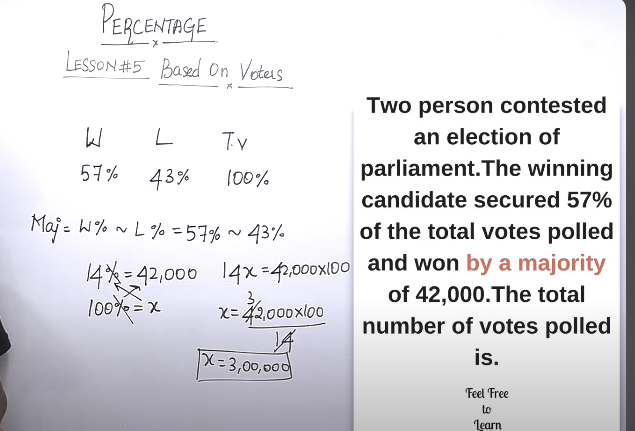 PERCENTAGE
LESSON #5 Based On Voters
W L T.V
57% 43% 100%
Maj = W% ~ L% = 57% ~ 43%
14% = 42,000
100% = x
14x = 42,000x100
3
x = 42,000x100
14
x = 3,00,000
Two person contested
an election of
parliament.The winning
candidate secured 57%
of the total votes polled
and won by a majority
of 42,000.The total
number of votes polled
is.
Feel Free
to
Learn